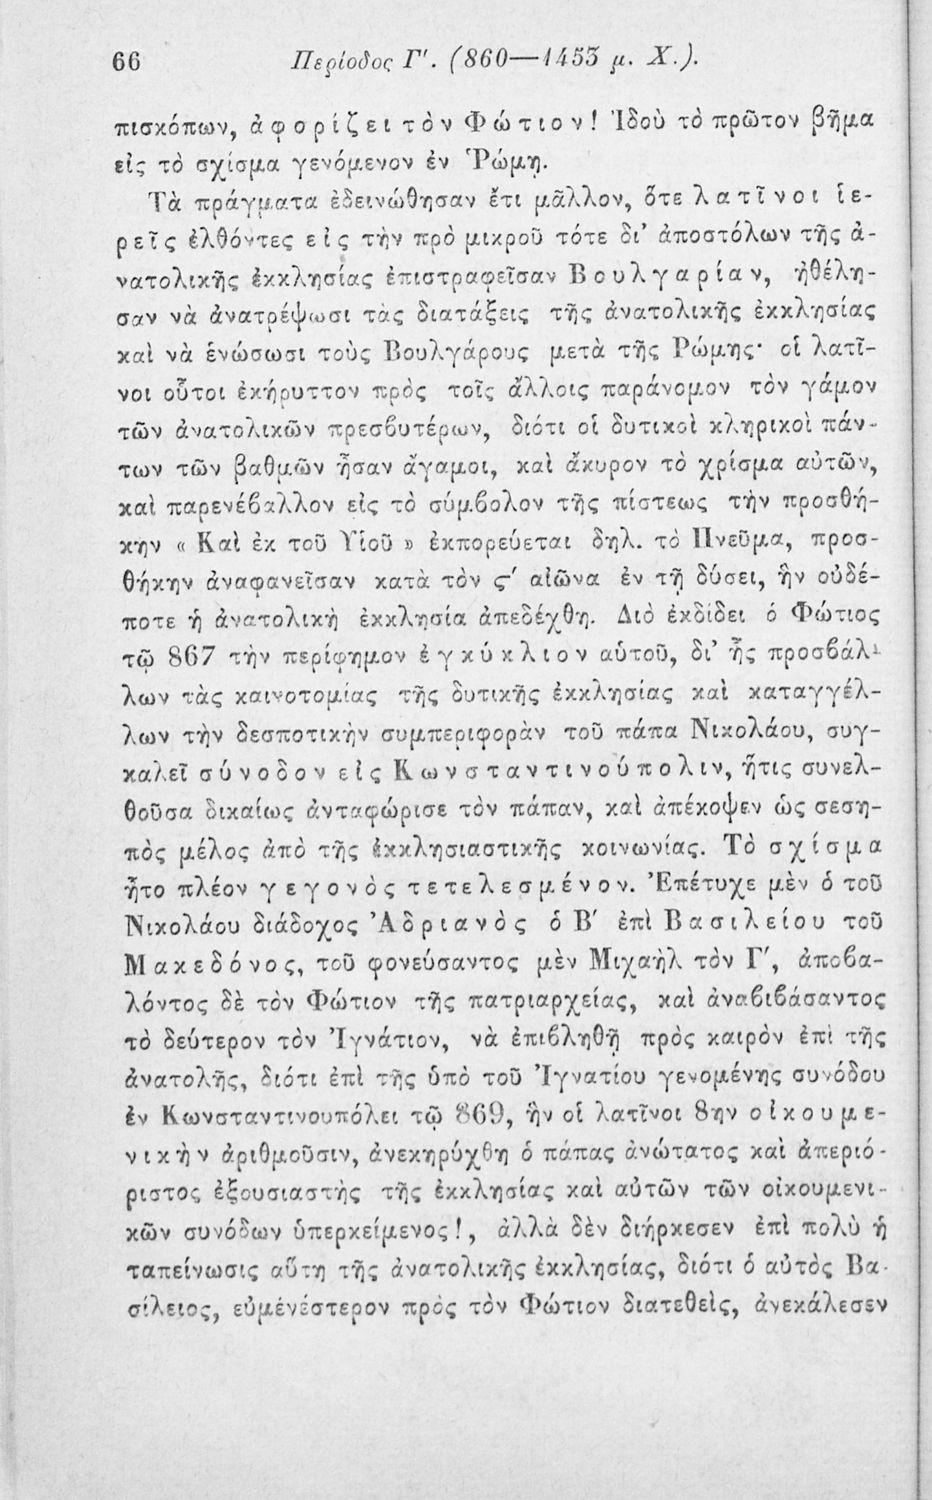 66 Περίοδος Γ'. (860—1453 μ. Χ.).
πισκόπων, ἀφορίζει τὸν Φώτιον! Ἰδοὺ τὸ πρῶτον βῆμα
εἰς τὸ σχίσμα γενόμενον ἐν Ῥώμῃ.
Τὰ πράγματα ἐδεινώθησαν ἔτι μᾶλλον, ὅτε λατῖνοι ἱε-
ρεῖς ἐλθόντες εἰς τὴν πρὸ μικροῦ τότε δι' ἀποστόλων τῆς ἀ-
νατολικῆς ἐκκλησίας ἐπιστραφεῖσαν Βουλγαρίαν, ἠθέλη-
σαν νὰ ἀνατρέψωσι τὰς διατάξεις τῆς ἀνατολικῆς ἐκκλησίας
καὶ νὰ ἑνώσωσι τοὺς Βουλγάρους μετὰ τῆς Ῥώμης· οἱ λατῖ-
νοι οὗτοι ἐκήρυττον πρὸς τοῖς ἄλλοις παράνομον τὸν γάμον
τῶν ἀνατολικῶν πρεσϐυτέρων, διότι οἱ δυτικοὶ κληρικοὶ πάν-
των τῶν βαθμῶν ἦσαν ἄγαμοι, καὶ ἄκυρον τὸ χρίσμα αὐτῶν,
καὶ παρενέϐαλλον εἰς τὸ σύμϐολον τῆς πίστεως τὴν προσθή-
κην « Καὶ ἐκ τοῦ Υἱοῦ » ἐκπορεύεται δηλ. τὸ Πνεῦμα, προσ-
θήκην ἀναφανεῖσαν κατὰ τὸν ϛ' αἰῶνα ἐν τῇ δύσει, ἣν οὐδέ-
ποτε ἡ ἀνατολικὴ ἐκκλησία ἀπεδέχθη. Διὸ ἐκδίδει ὁ Φώτιος
τῷ 867 τὴν περίφημον ἐγκύκλιον αὑτοῦ, δι' ἧς προσϐάλ-
λων τὰς καινοτομίας τῆς δυτικῆς ἐκκλησίας καὶ καταγγέλ-
λων τὴν δεσποτικὴν συμπεριφορὰν τοῦ πάπα Νικολάου, συγ-
καλεῖ σύνοδον εἰς Κωνσταντινούπολιν, ἥτις συνελ-
θοῦσα δικαίως ἀνταφώρισε τὸν πάπαν, καὶ ἀπέκοψεν ὡς σεση-
πὸς μέλος ἀπὸ τῆς ἐκκλησιαστικῆς κοινωνίας. Τὸ σχίσμα
ἦτο πλέον γεγονὸς τετελεσμένον. Ἐπέτυχε μὲν ὁ τοῦ
Νικολάου διάδοχος Ἀδριανὸς ὁ Β' ἐπὶ Βασιλείου τοῦ
Μακεδόνος, τοῦ φονεύσαντος μὲν Μιχαὴλ τὸν Γ', ἀποϐα-
λόντος δὲ τὸν Φώτιον τῆς πατριαρχείας, καὶ ἀναϐιϐάσαντος
τὸ δεύτερον τὸν Ἰγνάτιον, νὰ ἐπιϐληθῇ πρὸς καιρὸν ἐπὶ τῆς
ἀνατολῆς, διότι ἐπὶ τῆς ὑπὸ τοῦ Ἰγνατίου γενομένης συνόδου
ἐν Κωνσταντινουπόλει τῷ 869, ἣν οἱ λατῖνοι 8ην οἰκουμε-
νικὴν ἀριθμοῦσιν, ἀνεκηρύχθη ὁ πάπας ἀνώτατος καὶ ἀπεριό-
ριστος ἐξουσιαστὴς τῆς ἐκκλησίας καὶ αὐτῶν τῶν οἰκουμενι-
κῶν συνόδων ὑπερκείμενος!, ἀλλὰ δὲν διήρκεσεν ἐπὶ πολὺ ἡ
ταπείνωσις αὕτη τῆς ἀνατολικῆς ἐκκλησίας, διότι ὁ αὐτὸς Βα-
σίλειος, εὐμενέστερον πρὸς τὸν Φώτιον διατεθεὶς, ἀνεκάλεσεν